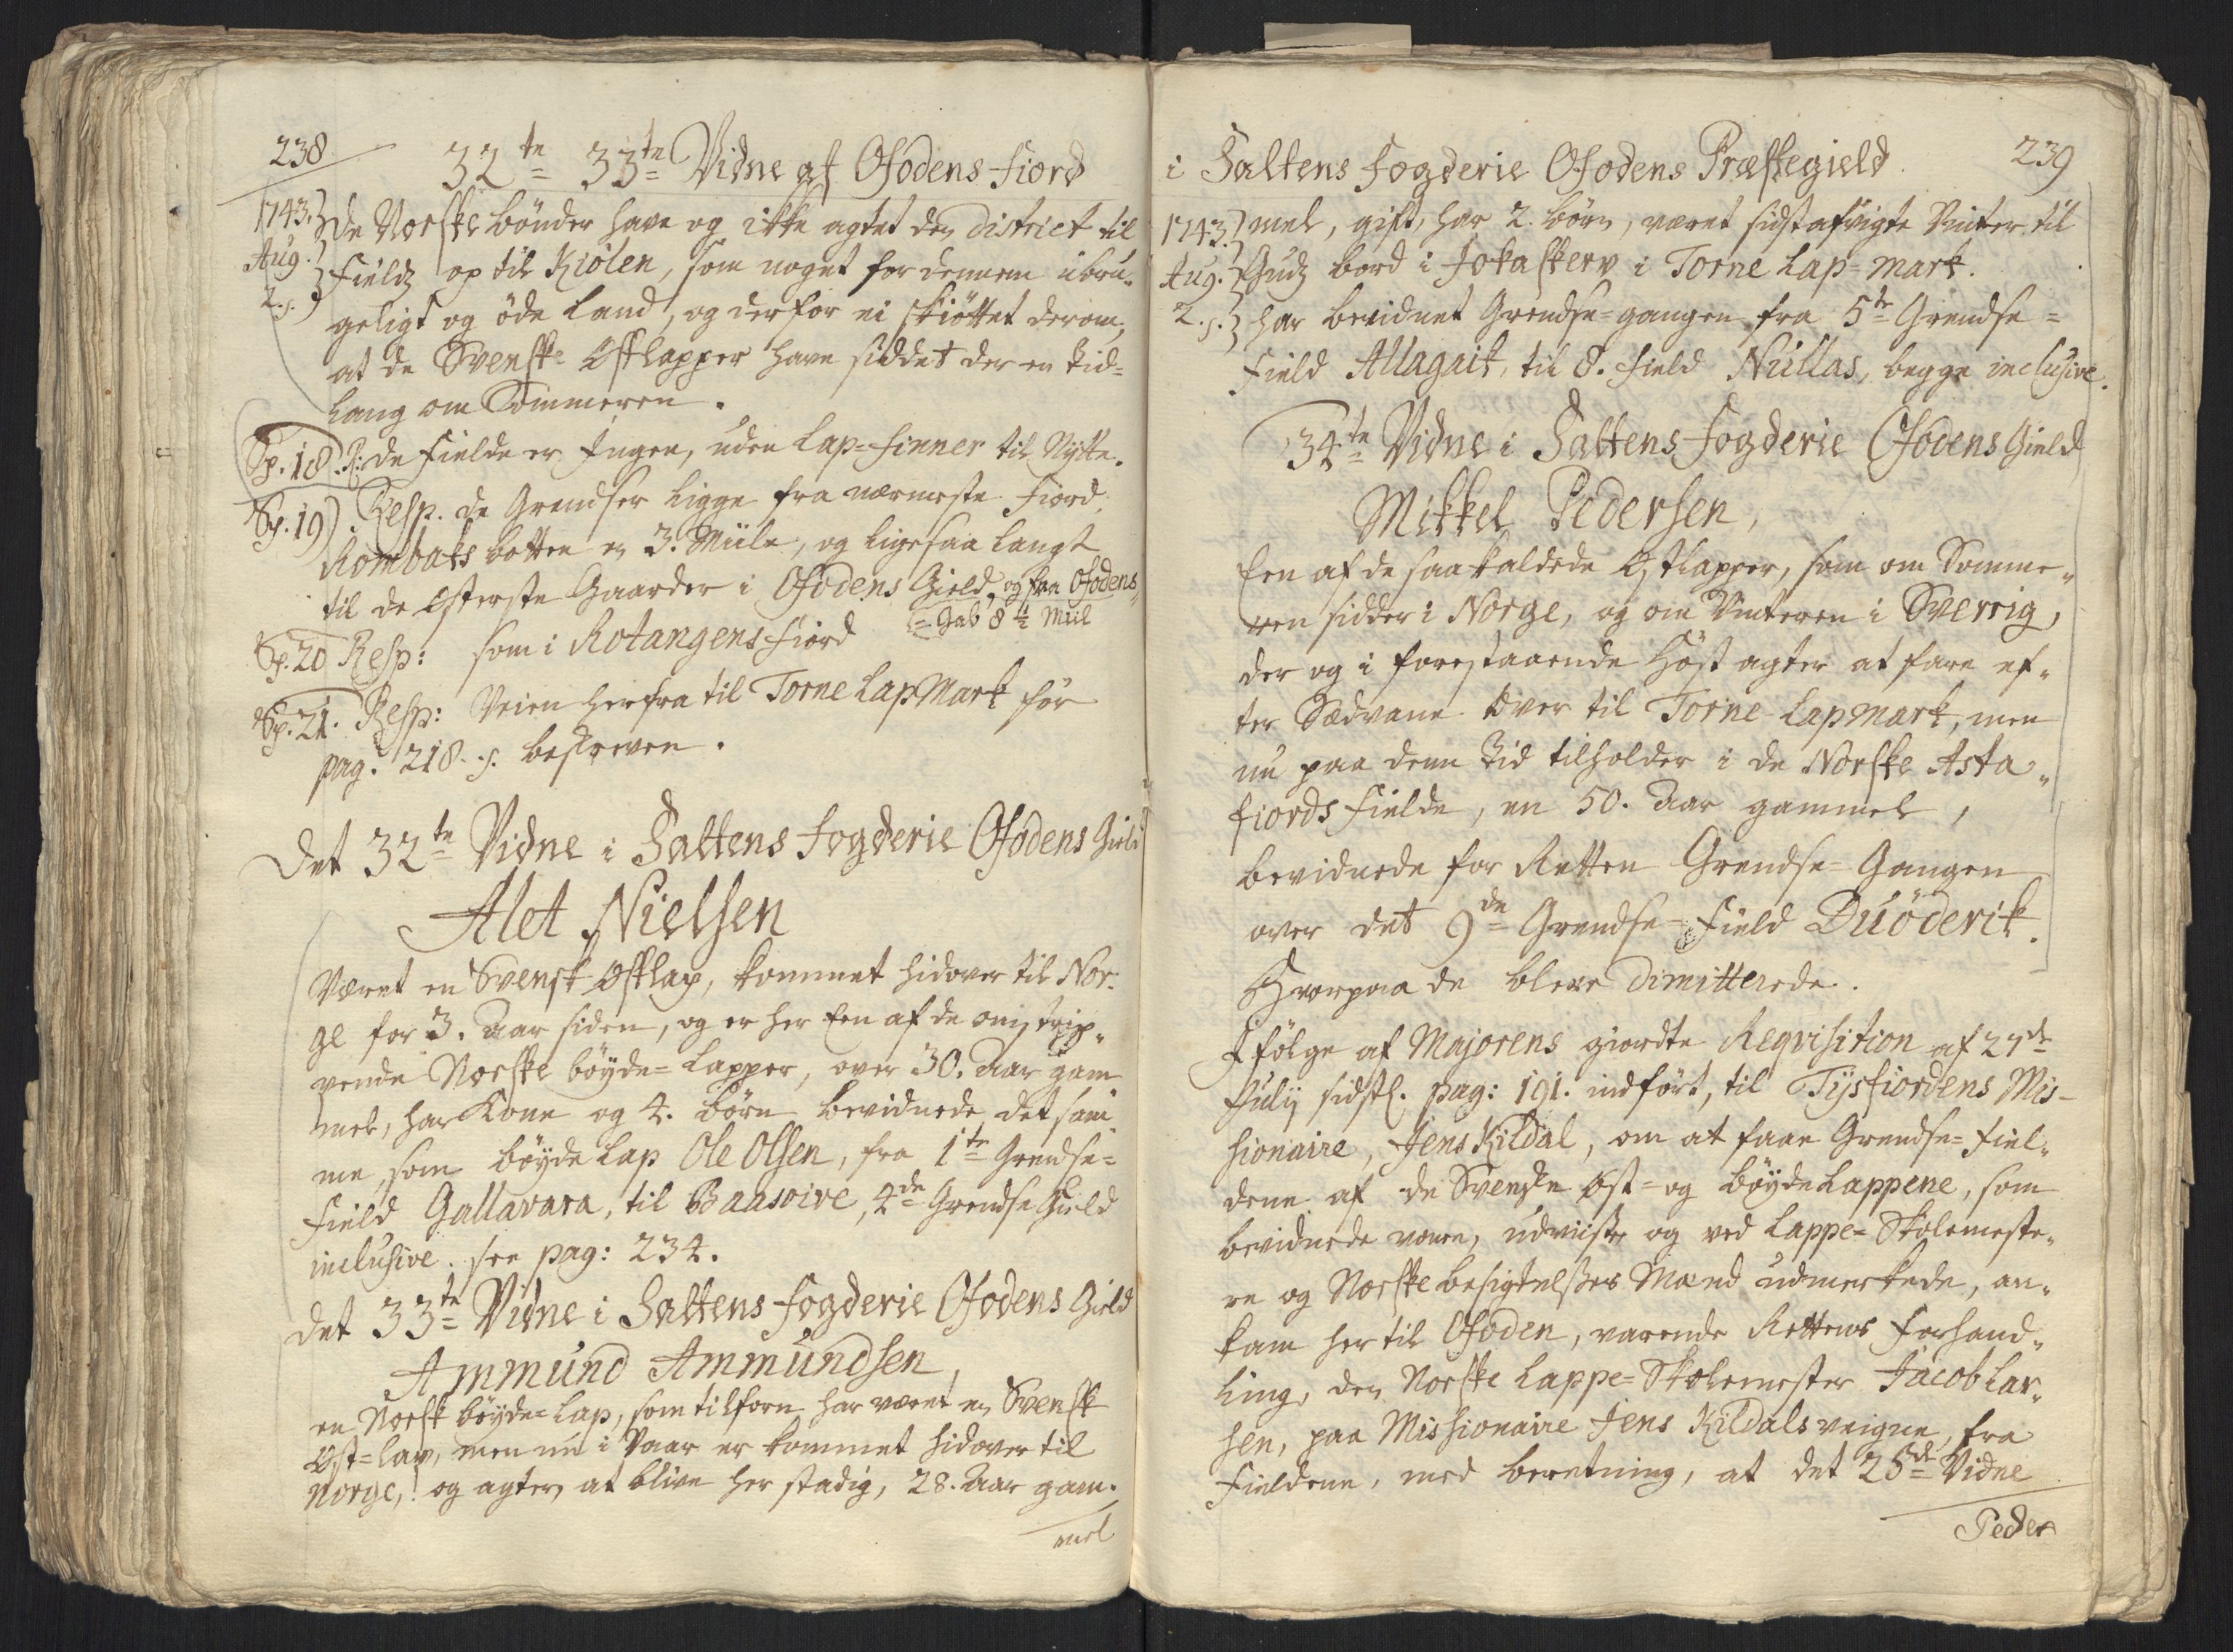 238
32te 33te Vidne af Ofodens-Fiord
1743.
Aug.
2. s.
De Norske bönder have og ikke agtet den District til
Fields op til Kiölen, som noget for dennem ubru„
geligt og öde Land, og derfor ei skiöttet derom,
at de Svenske Östlapper have siddet der en tid-
lang om Sommeren.
Sp. 18. R: de Fielde er Ingen, uden Lap-Finner til Nytte.
Sp. 19) Resp. de Grendser ligge fra nærmeste Fiord,
Rombaks botten en 3. Miile, og ligesaa langt
til de österste Gaarder i Ofodens Gield, og fra Ofodens„
Gab 8 ½ Miil
Sp. 20 Resp: som i Rotangens Fiord
Sp. 21. Resp: Veien herfra til Torne LapMark för
pag: 218. s. beskreven.
Det 32te Vidne i Saltens Fogderie Ofodens Gield
Alet Nielsen
Været en Svensk Östlap, kommet hidover til Nor-
ge for 3. Aar siden, og er her Een af de omstrip„
vende Norske böyde-Lapper, over 30. Aar gam
mel, har Kone og 4. börn bevidnede det sam„
me, som böyde Lap Ole Olsen, fra 1te Grendse-
Field Gallavara, til Baasoive, 4de Grendse Field
inclusive. see pag: 234.
Det 33te Vidne i Saltens Fogderie Ofodens Gield
Ammund Ammundsen,
en Norsk böyde-Lap, som tilforn har været en Svensk
Öst-lap, men nu i Vaar er kommet hidover til
Norge, og agter at blive her stadig, 28. Aar gam-
mel
i Saltens Fogderie Ofodens Præstegield
239
1743.
Aug.
2. s.
mel, gift, har 2. börn, været sidstafvigte Vinter til
Guds bord i Jokaskerv i Torne Lap-mark.
har bevidnet Grendse-gangen fra 5te Grendse-
Field Allagait, til 8. Field Nullas, begge inclusive.
34te Vidne i Saltens Fogderie Ofodens Gield
Mikkel Pedersen,
Een af de saa kaldede Östlapper, som om Somme„
ren sidder i Norge, og om Vinteren i Sverrig,
der og i forestaaende Höst agter at fare ef„
ter Sædvane över til Torne-Lapmark, men
nu paa denne tid tilholder i de Norske Asta„
fiords Fielde, en 50. Aar gammel,
bevidnede for Retten Grendse-Gangen
over det 9de Grendse-Field Duöderik.
Hvorpaa de bleve Dimitterede.
I fölge af Majorens giordte Reqvisition af 27de
July sidstl. pag: 191. indfört, til Tysfiordens Mis-
sionaire, Jens Kildal, om at faae Grendse-Fiel„
dene af de Svenske öst- og böyde Lappene, som
bevidnede være, udviiste og ved Lappe-Skolemeste„
re og Norske besigtelses Mænd udmerkede, an„
kam her til Ofoden, varende Rettens Forhand„
ling, den Norske Lappe-Skolemester Jacob Lar„
sen, paa Missionaire Jens Kildals veigne, fra
Fieldene, med beretning, at det 25de Vidne
Peder